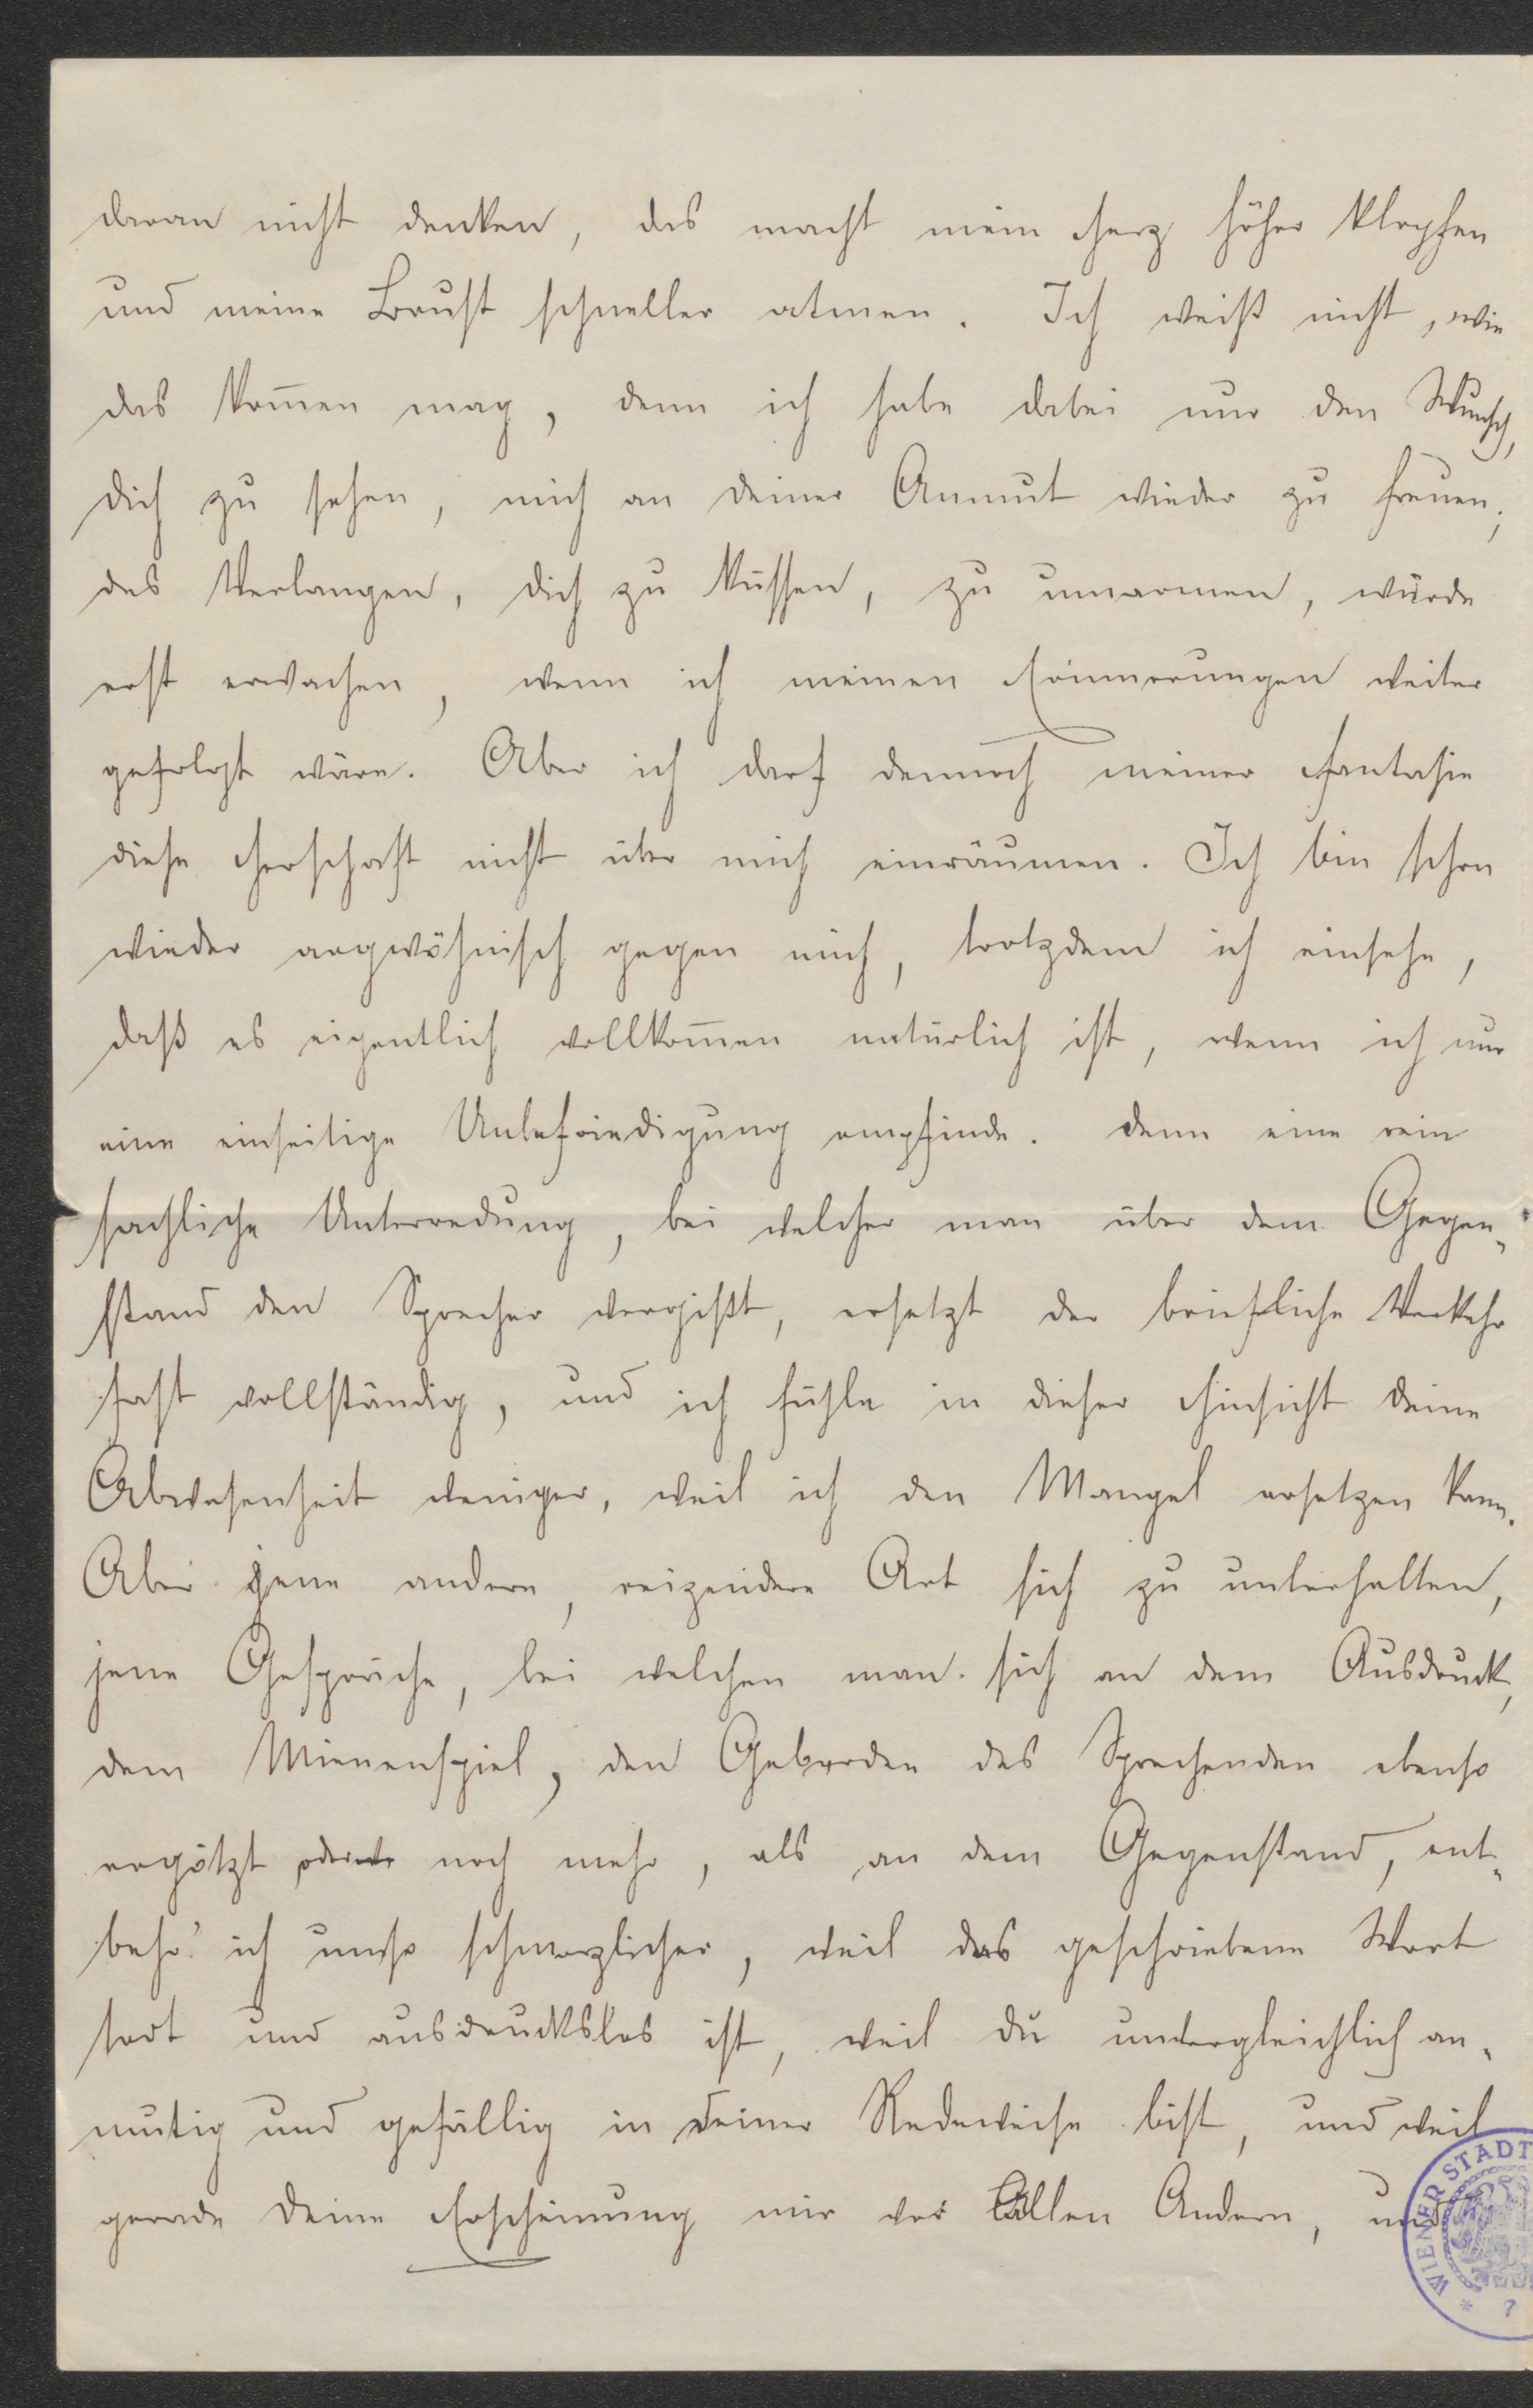 daran nicht denken, das macht mein Herz höher klopfen
und meine Brust schneller atmen. Ich weiß nicht, wie
das kom̅en mag, denn ich habe dabei nur den Wunsch,
dich zu sehen, mich an deiner Anmut wieder zu freuen;
das Verlangen, dich zu küssen, zu umarmen, würde
erst erwachen, wenn ich meinen Erinnerungen weiter
gefolgt wäre. Aber ich darf dennoch meiner Fantasie
diese Herschaft nicht über mich einräumen. Ich bin schon
wieder argwöhnisch gegen mich, trotzdem ich einsehe,
daß es eigentlich vollkom̅en natürlich ist, wenn ich nur
eine einseitige Unbefriedigung empfinde. Denn eine rein
sachliche Unterredung, bei welcher man über dem Gegen-
stand den Sprecher vergißt, ersetzt der briefliche Verkehr
fast vollständig, und ich fühle in dieser Hinsicht deine
Abwesenheit weniger, weil ich den Mangel ersetzen kann.
Aber jene andere, reizendere Art sich zu unterhalten,
jene Gespräche, bei welchen man sich an dem Ausdruck,
dem Mienenspiel, den Geberden des Sprechenden ebenso
ergötzt oder noch mehr, als an dem Gegenstand, ent-
behr' ich umso schmerzlicher, weil das geschriebene Wort
tot und ausdruckslos ist, weil du unvergleichlich an-
mutig und gefällig in deiner Redeweise bist, und weil
gerade deine Erscheinung mir vor Allen Andern, und
WIENER STADT